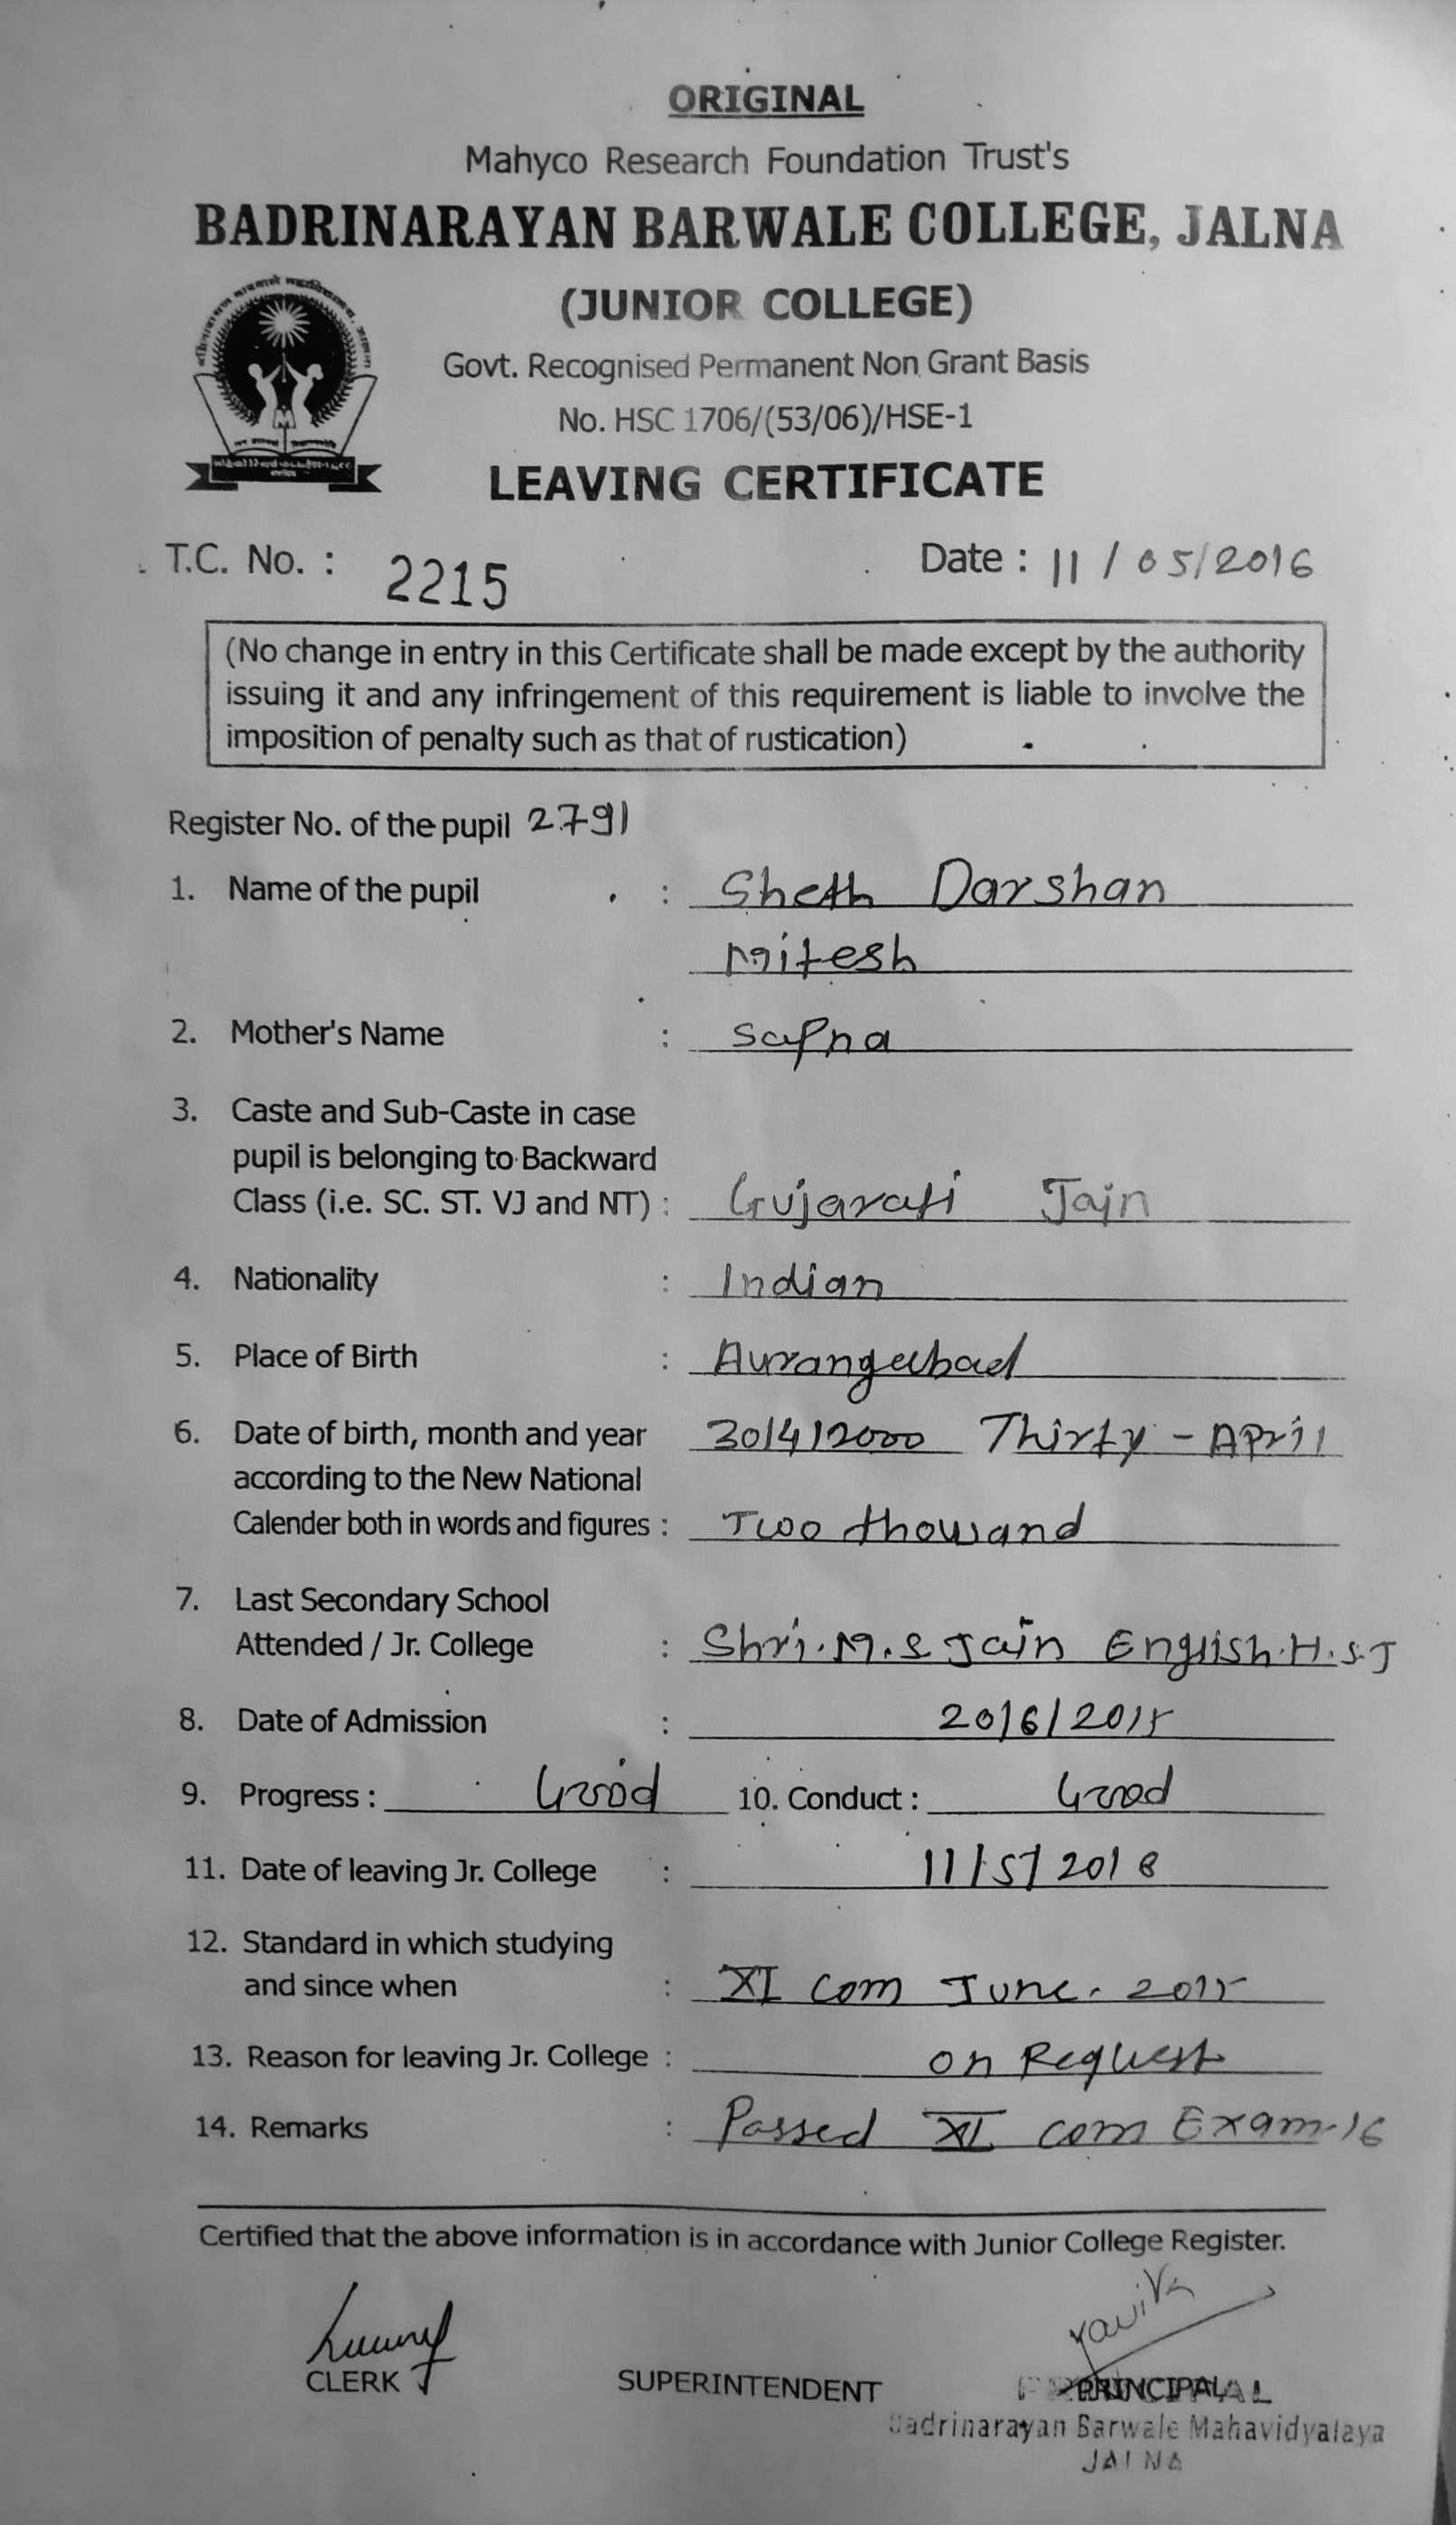 ORIGINAL
Mahyco Research Foundation Trust's
BADRINARAYAN BARWALE COLLEGE, JALNA
(JUNIOR COLLEGE)
Govt. Recognised Permanent Non Grant Basis
No. HSC 1706/(53/06)/HSE-1
LEAVING CERTIFICATE
T.C. No. : 2215 Date : 11/05/2016
(No change in entry in this Certificate shall be made except by the authority
issuing it and any infringement of this requirement is liable to involve the
imposition of penalty such as that of rustication)
Register No. of the pupil 2791
1. Name of the pupil : Sheth Darshan
Mitesh
2. Mother's Name : Sapna
3. Caste and Sub-Caste in case
pupil is belonging to Backward
Class (i.e. SC. ST. VJ and NT) : Gujarati Jain
4. Nationality : Indian
5. Place of Birth : Aurangabad
6. Date of birth, month and year 30/4/2000 Thirty - April
according to the New National
Calender both in words and figures : Two thousand
7. Last Secondary School
Attended / Jr. College : Shri. M. S Jain English. H.S.J
8. Date of Admission : 20/6/2015
9. Progress : Good 10. Conduct : Good
11. Date of leaving Jr. College : 11/5/2016
12. Standard in which studying
and since when : XI com June. 2015
13. Reason for leaving Jr. College : on Request
14. Remarks : Passed XI com Exam-16
Certified that the above information is in accordance with Junior College Register.
CLERK SUPERINTENDENT PRINCIPAL
Badrinarayan Barwale Mahavidyalaya
JALNA